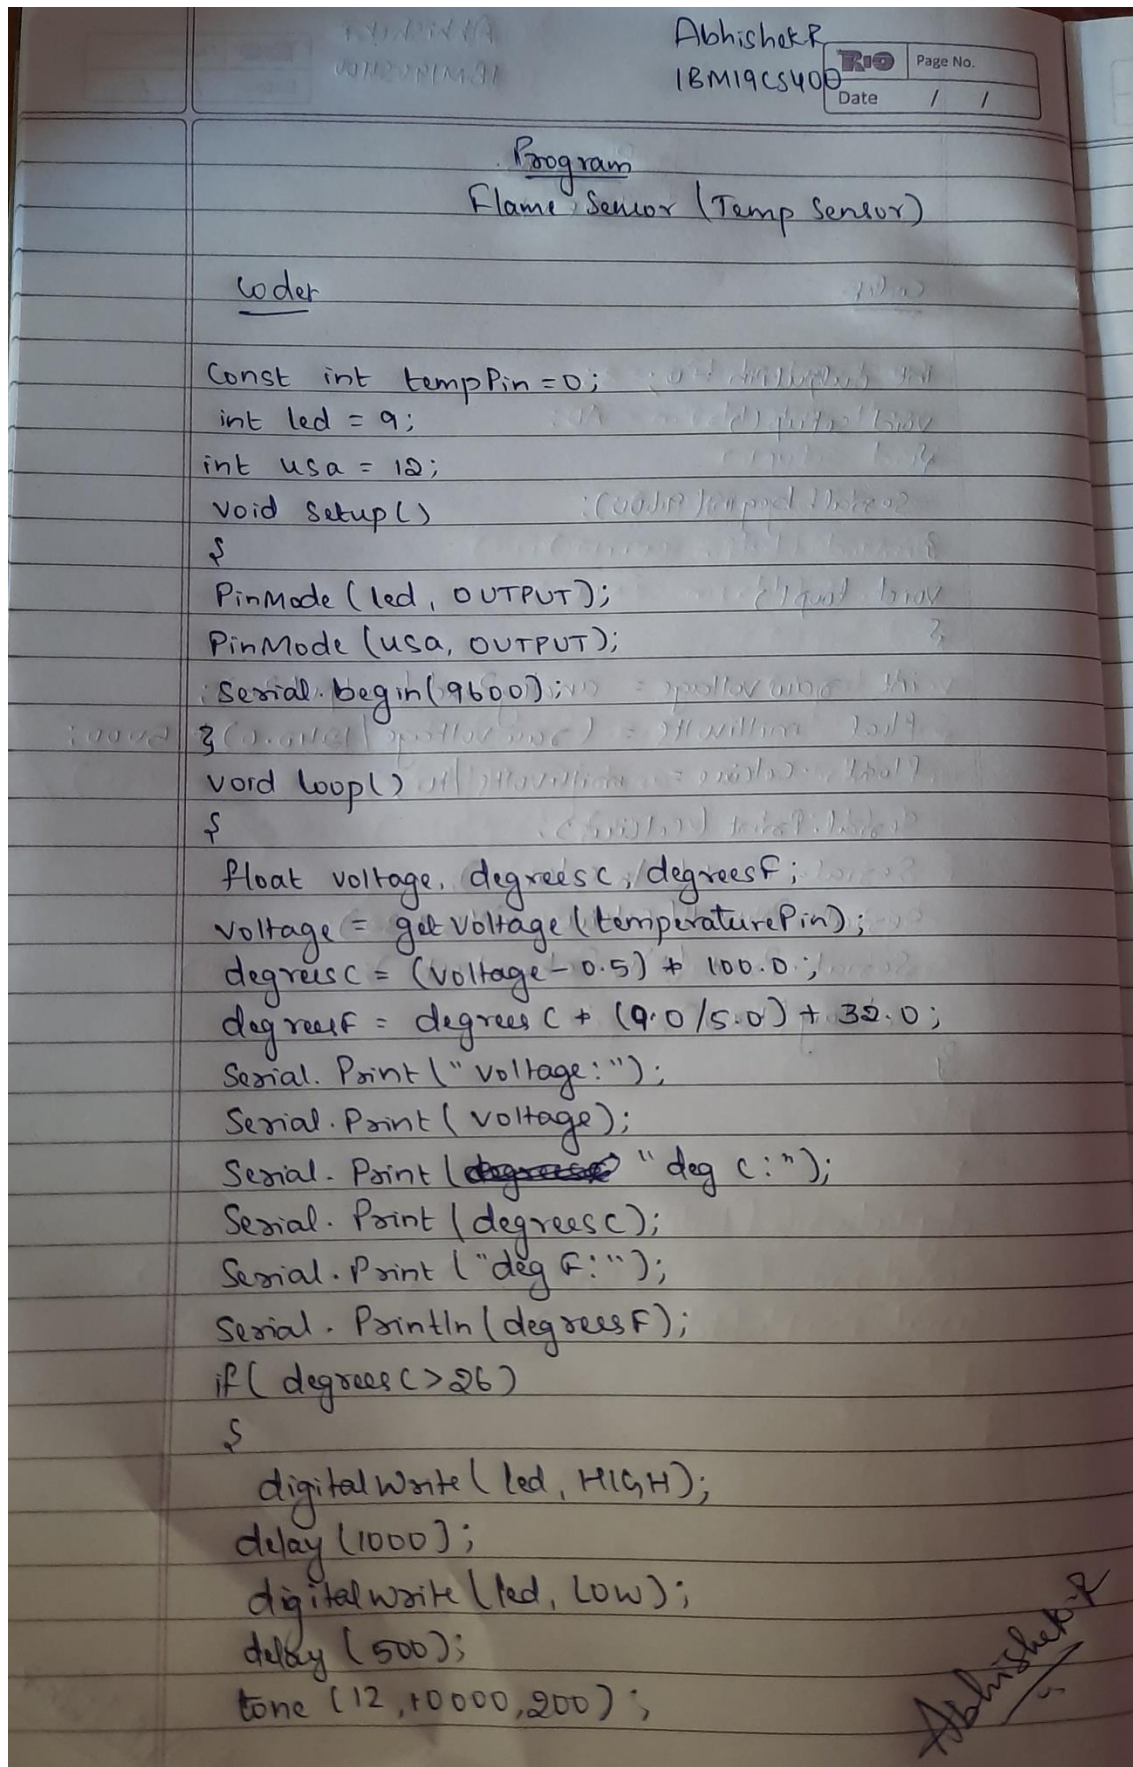 Abhishek R
1BM19CS400
RIO
Page No.
Date / /
Program
Flame Sensor (Temp Sensor)
Code:
Const int tempPin = 0;
int led = 9;
int usa = 12;
void setup()
{
PinMode (led, OUTPUT);
PinMode (usa, OUTPUT);
Serial.begin(9600);
}
void loop()
{
float voltage, degreesC, degreesF;
voltage = getVoltage (temperaturePin);
degreesC = (voltage - 0.5) * 100.0;
degreesF = degreesC * (9.0/5.0) + 32.0;
Serial.Print ("voltage:");
Serial.Print (voltage);
Serial.Print ("deg C:");
Serial.Print (degreesC);
Serial.Print ("deg F:");
Serial.Println (degreesF);
if( degreesC > 26)
{
digitalWrite (led, HIGH);
delay (1000);
digitalWrite (led, LOW);
delay (500);
tone (12, 10000, 200);
Abhishek.R